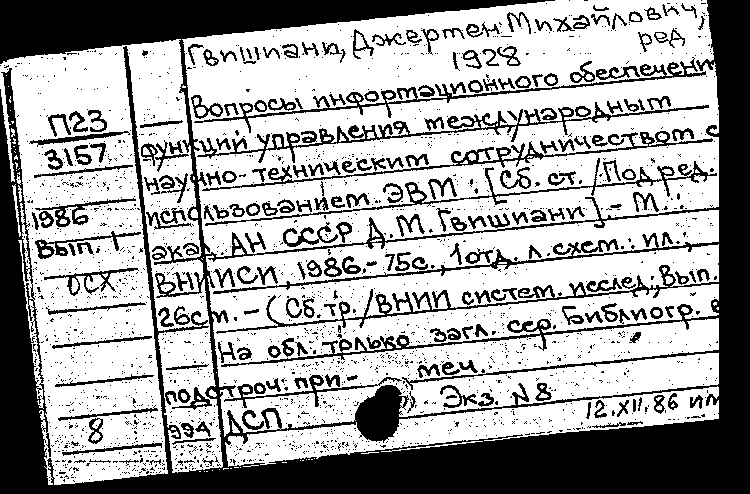 Гвишиани, Джермен Михайлович,
ред
1928
Вопросы информационного обеспечени
П23
3157
функций управления международным
научно-техническим сотрудничеством с
1986
использованием ЭВМ : [Сб. ст. / Под ред.
Вып. 1
акад. АН СССР Д.М. Гвишиани]. - М. :
ОСХ
ВНИИСИ, 1986. - 75с., 1отд. л.схем. : ил. ;
26см. - (Сб. тр. / ВНИИ систем. исслед.; Вып.
На обл. только загл. сер. Библиогр. в
подстроч. при- меч.
Экз. N8
8
994 ДСП.
12.XII.86 им